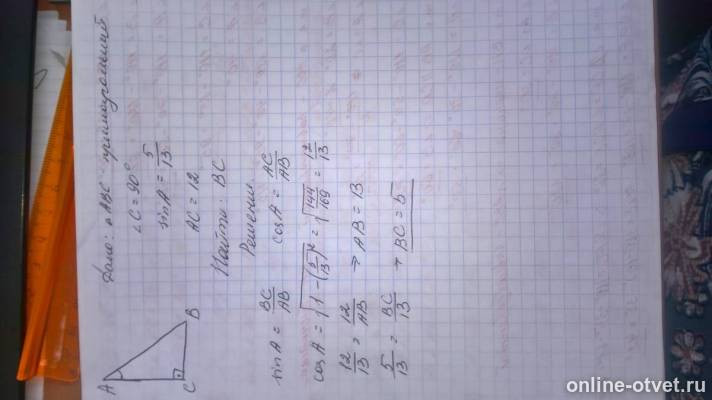 Дано: △ABC - прямоугольный
∠C = 90°
sin A = 5/13
AC = 12
Найти: BC
Решение
sin A = BC/AB cos A = AC/AB
cos A = √(1 - (5/13)²) = √(144/169) = 12/13
12/13 = 12/AB → AB = 13
5/13 = BC/13 → BC = 5
A
B
C
online-otvet.ru